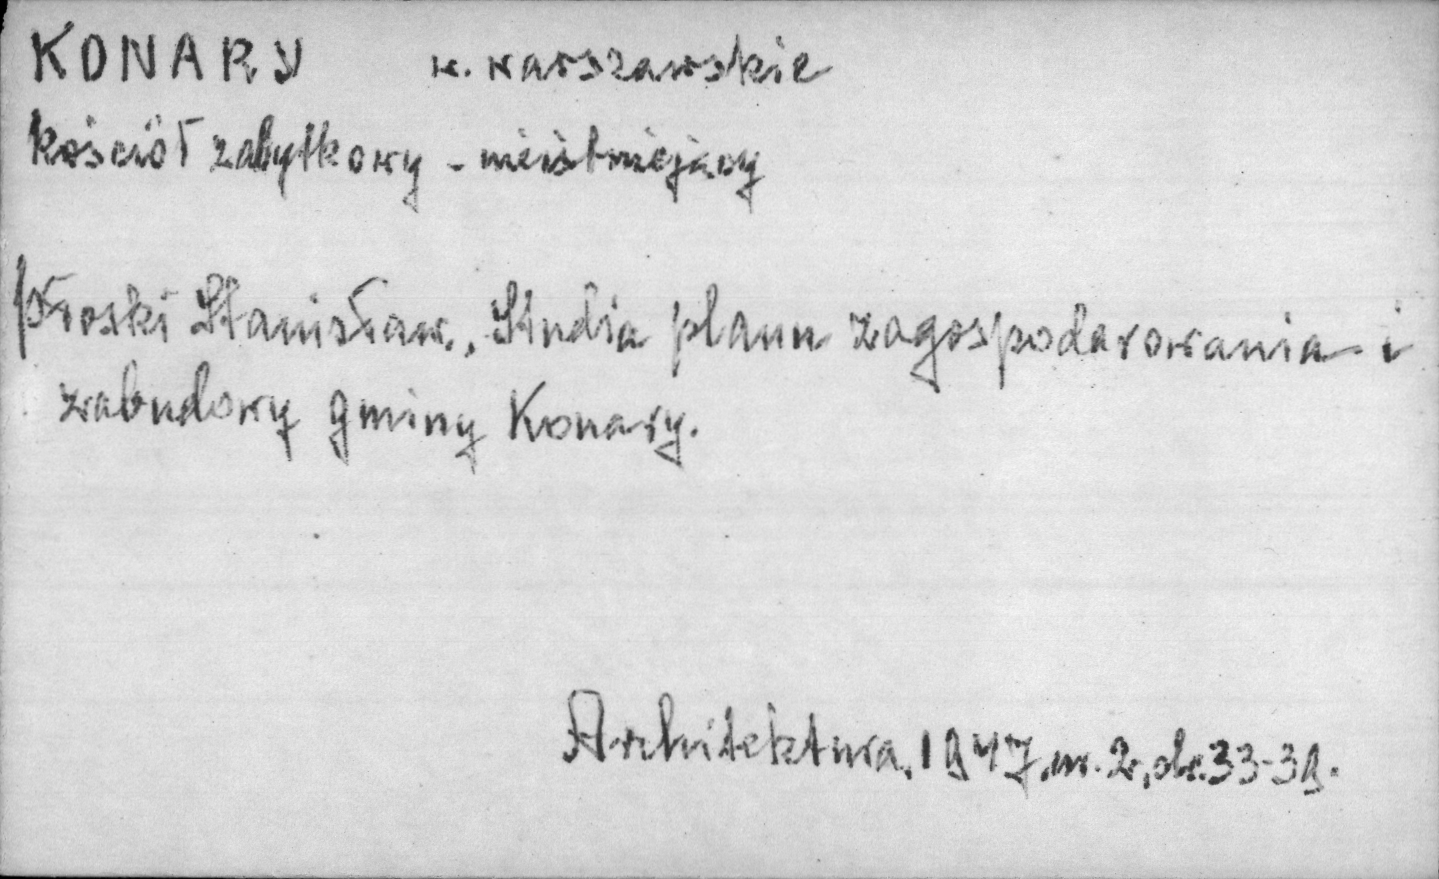 KONARY w. warszawskie
kościół zabytkowy - nieistniejący
Płoski Stanisław., Studia planu zagospodarowania i
zabudowy gminy Konary.
Architektura, 1947, nr. 2, str. 33-39.